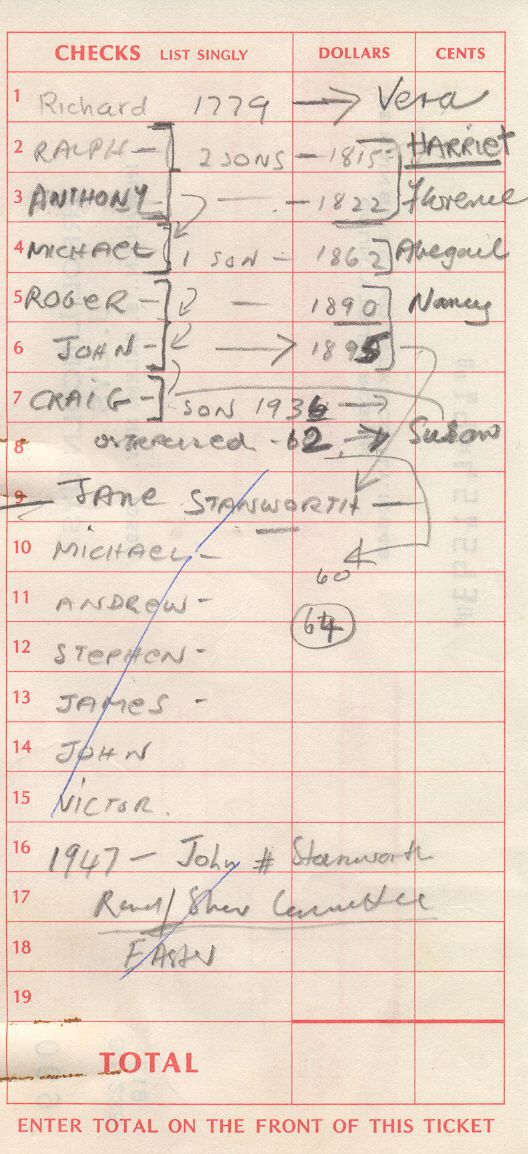 CHECKS LIST SINGLY DOLLARS CENTS
1 Richard 1779 → Vera
2 RALPH - 2 SONS - 1815 HARRIET
3 ANTHONY - 1822 Florence
4 MICHAEL 1 SON - 1862 Abegail
5 ROGER - - 1890 Nancy
6 JOHN - → 1895
7 CRAIG - SON 1936 →
8 - 62 → Susan
9 JANE STANWORTH -
10 MICHAEL -
60
11 ANDREW -
64
12 STEPHEN -
13 JAMES -
14 JOHN
15 VICTOR.
16 1947 - John # Stanworth
17 Committee
18
19
TOTAL
ENTER TOTAL ON THE FRONT OF THIS TICKET